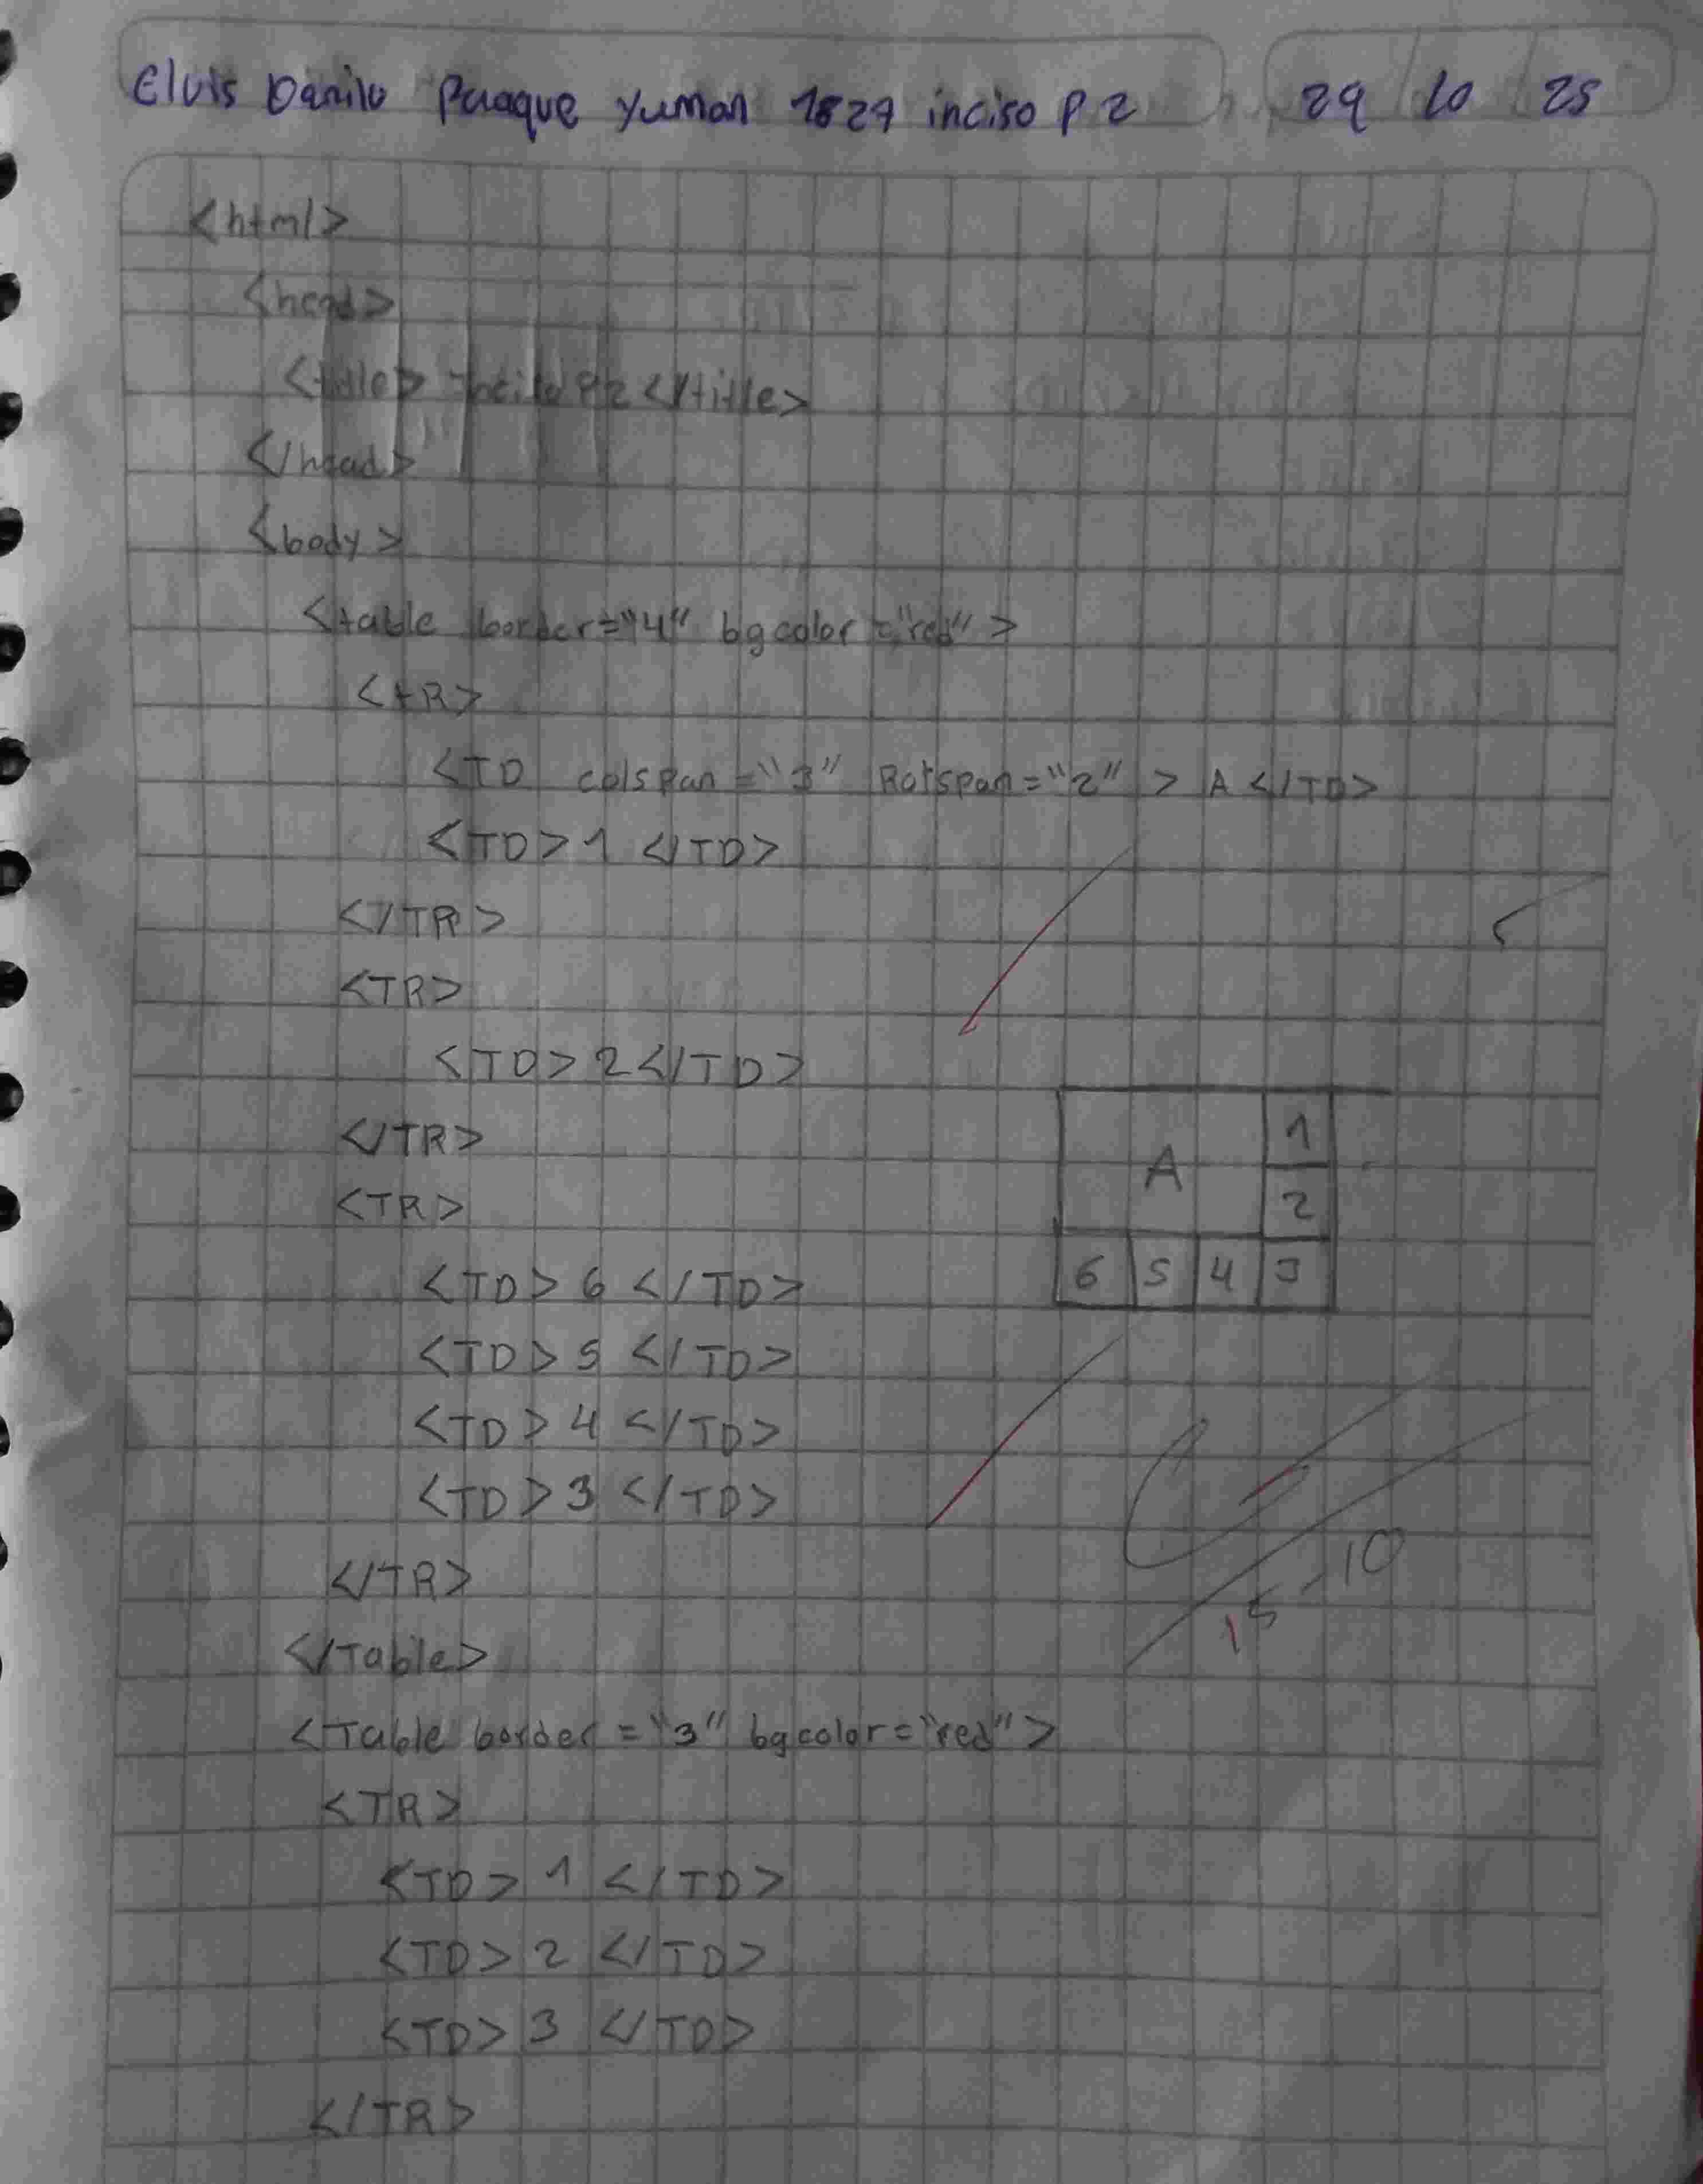 Elvis Danilo Paraque Yuman 1827 inciso P2 29 10 25
<html>
<head>
<title> Inciso P2 </title>
</head>
<body>
<table border="4" bgcolor="red">
<tR>
<TD colspan="3" Rotspan="2" > A </TD>
<TD> 1 </TD>
</TR>
<TR>
<TD> 2 </TD>
</TR>
<TR>
<TD> 6 </TD>
<TD> 5 </TD>
<TD> 4 </TD>
<TD> 3 </TD>
</TR>
</Table>
<Table border="3" bgcolor="red">
<TR>
<TD> 1 </TD>
<TD> 2 </TD>
<TD> 3 </TD>
</TR>
A 1
2
6 5 4 3
15-10